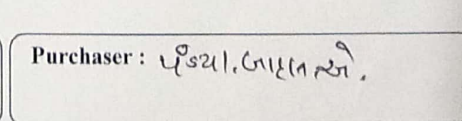 Purchaser : પંડ્યા. બાદલ એ.